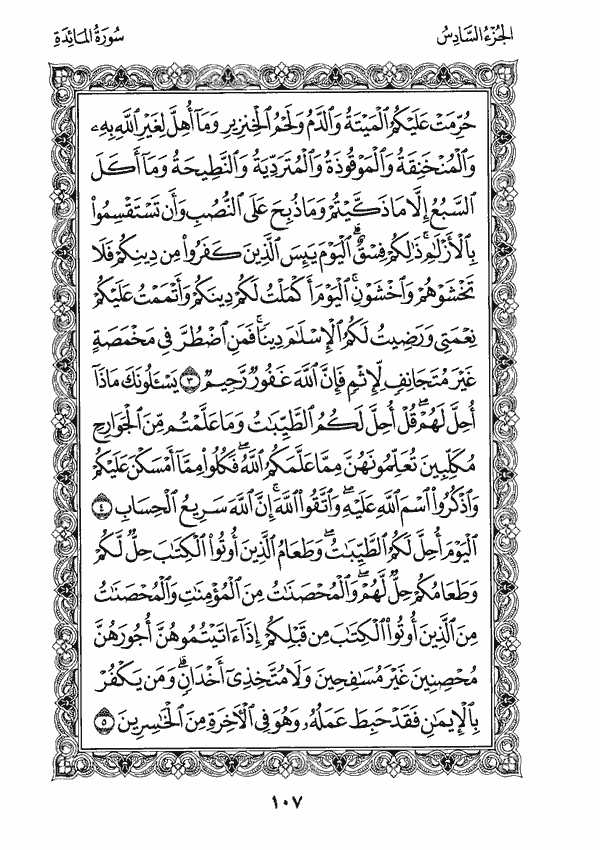 الجزء السادس
سورة المائدة
حُرِّمَتْ عَلَيْكُمُ ٱلْمَيْتَةُ وَٱلدَّمُ وَلَحْمُ ٱلْخِنزِيرِ وَمَآ أُهِلَّ لِغَيْرِ ٱللَّهِ بِهِۦ
وَٱلْمُنْخَنِقَةُ وَٱلْمَوْقُوذَةُ وَٱلْمُتَرَدِّيَةُ وَٱلنَّطِيحَةُ وَمَآ أَكَلَ
ٱلسَّبُعُ إِلَّا مَا ذَكَّيْتُمْ وَمَا ذُبِحَ عَلَى ٱلنُّصُبِ وَأَن تَسْتَقْسِمُوا۟
بِٱلْأَزْلَٰمِ ۚ ذَٰلِكُمْ فِسْقٌ ۗ ٱلْيَوْمَ يَئِسَ ٱلَّذِينَ كَفَرُوا۟ مِن دِينِكُمْ فَلَا
تَخْشَوْهُمْ وَٱخْشَوْنِ ۚ ٱلْيَوْمَ أَكْمَلْتُ لَكُمْ دِينَكُمْ وَأَتْمَمْتُ عَلَيْكُمْ
نِعْمَتِى وَرَضِيتُ لَكُمُ ٱلْإِسْلَٰمَ دِينًا ۚ فَمَنِ ٱضْطُرَّ فِى مَخْمَصَةٍ
غَيْرَ مُتَجَانِفٍ لِّإِثْمٍ ۙ فَإِنَّ ٱللَّهَ غَفُورٌ رَّحِيمٌ ٣ يَسْـَٔلُونَكَ مَاذَآ
أُحِلَّ لَهُمْ ۖ قُلْ أُحِلَّ لَكُمُ ٱلطَّيِّبَٰتُ ۙ وَمَا عَلَّمْتُم مِّنَ ٱلْجَوَارِحِ
مُكَلِّبِينَ تُعَلِّمُونَهُنَّ مِمَّا عَلَّمَكُمُ ٱللَّهُ ۖ فَكُلُوا۟ مِمَّآ أَمْسَكْنَ عَلَيْكُمْ
وَٱذْكُرُوا۟ ٱسْمَ ٱللَّهِ عَلَيْهِ ۖ وَٱتَّقُوا۟ ٱللَّهَ ۚ إِنَّ ٱللَّهَ سَرِيعُ ٱلْحِسَابِ ٤
ٱلْيَوْمَ أُحِلَّ لَكُمُ ٱلطَّيِّبَٰتُ ۖ وَطَعَامُ ٱلَّذِينَ أُوتُوا۟ ٱلْكِتَٰبَ حِلٌّ لَّكُمْ
وَطَعَامُكُمْ حِلٌّ لَّهُمْ ۖ وَٱلْمُحْصَنَٰتُ مِنَ ٱلْمُؤْمِنَٰتِ وَٱلْمُحْصَنَٰتُ
مِنَ ٱلَّذِينَ أُوتُوا۟ ٱلْكِتَٰبَ مِن قَبْلِكُمْ إِذَآ ءَاتَيْتُمُوهُنَّ أُجُورَهُنَّ
مُحْصِنِينَ غَيْرَ مُسَٰفِحِينَ وَلَا مُتَّخِذِىٓ أَخْدَانٍ ۗ وَمَن يَكْفُرْ
بِٱلْإِيمَٰنِ فَقَدْ حَبِطَ عَمَلُهُۥ وَهُوَ فِى ٱلْءَاخِرَةِ مِنَ ٱلْخَٰسِرِينَ ٥
١٠٧